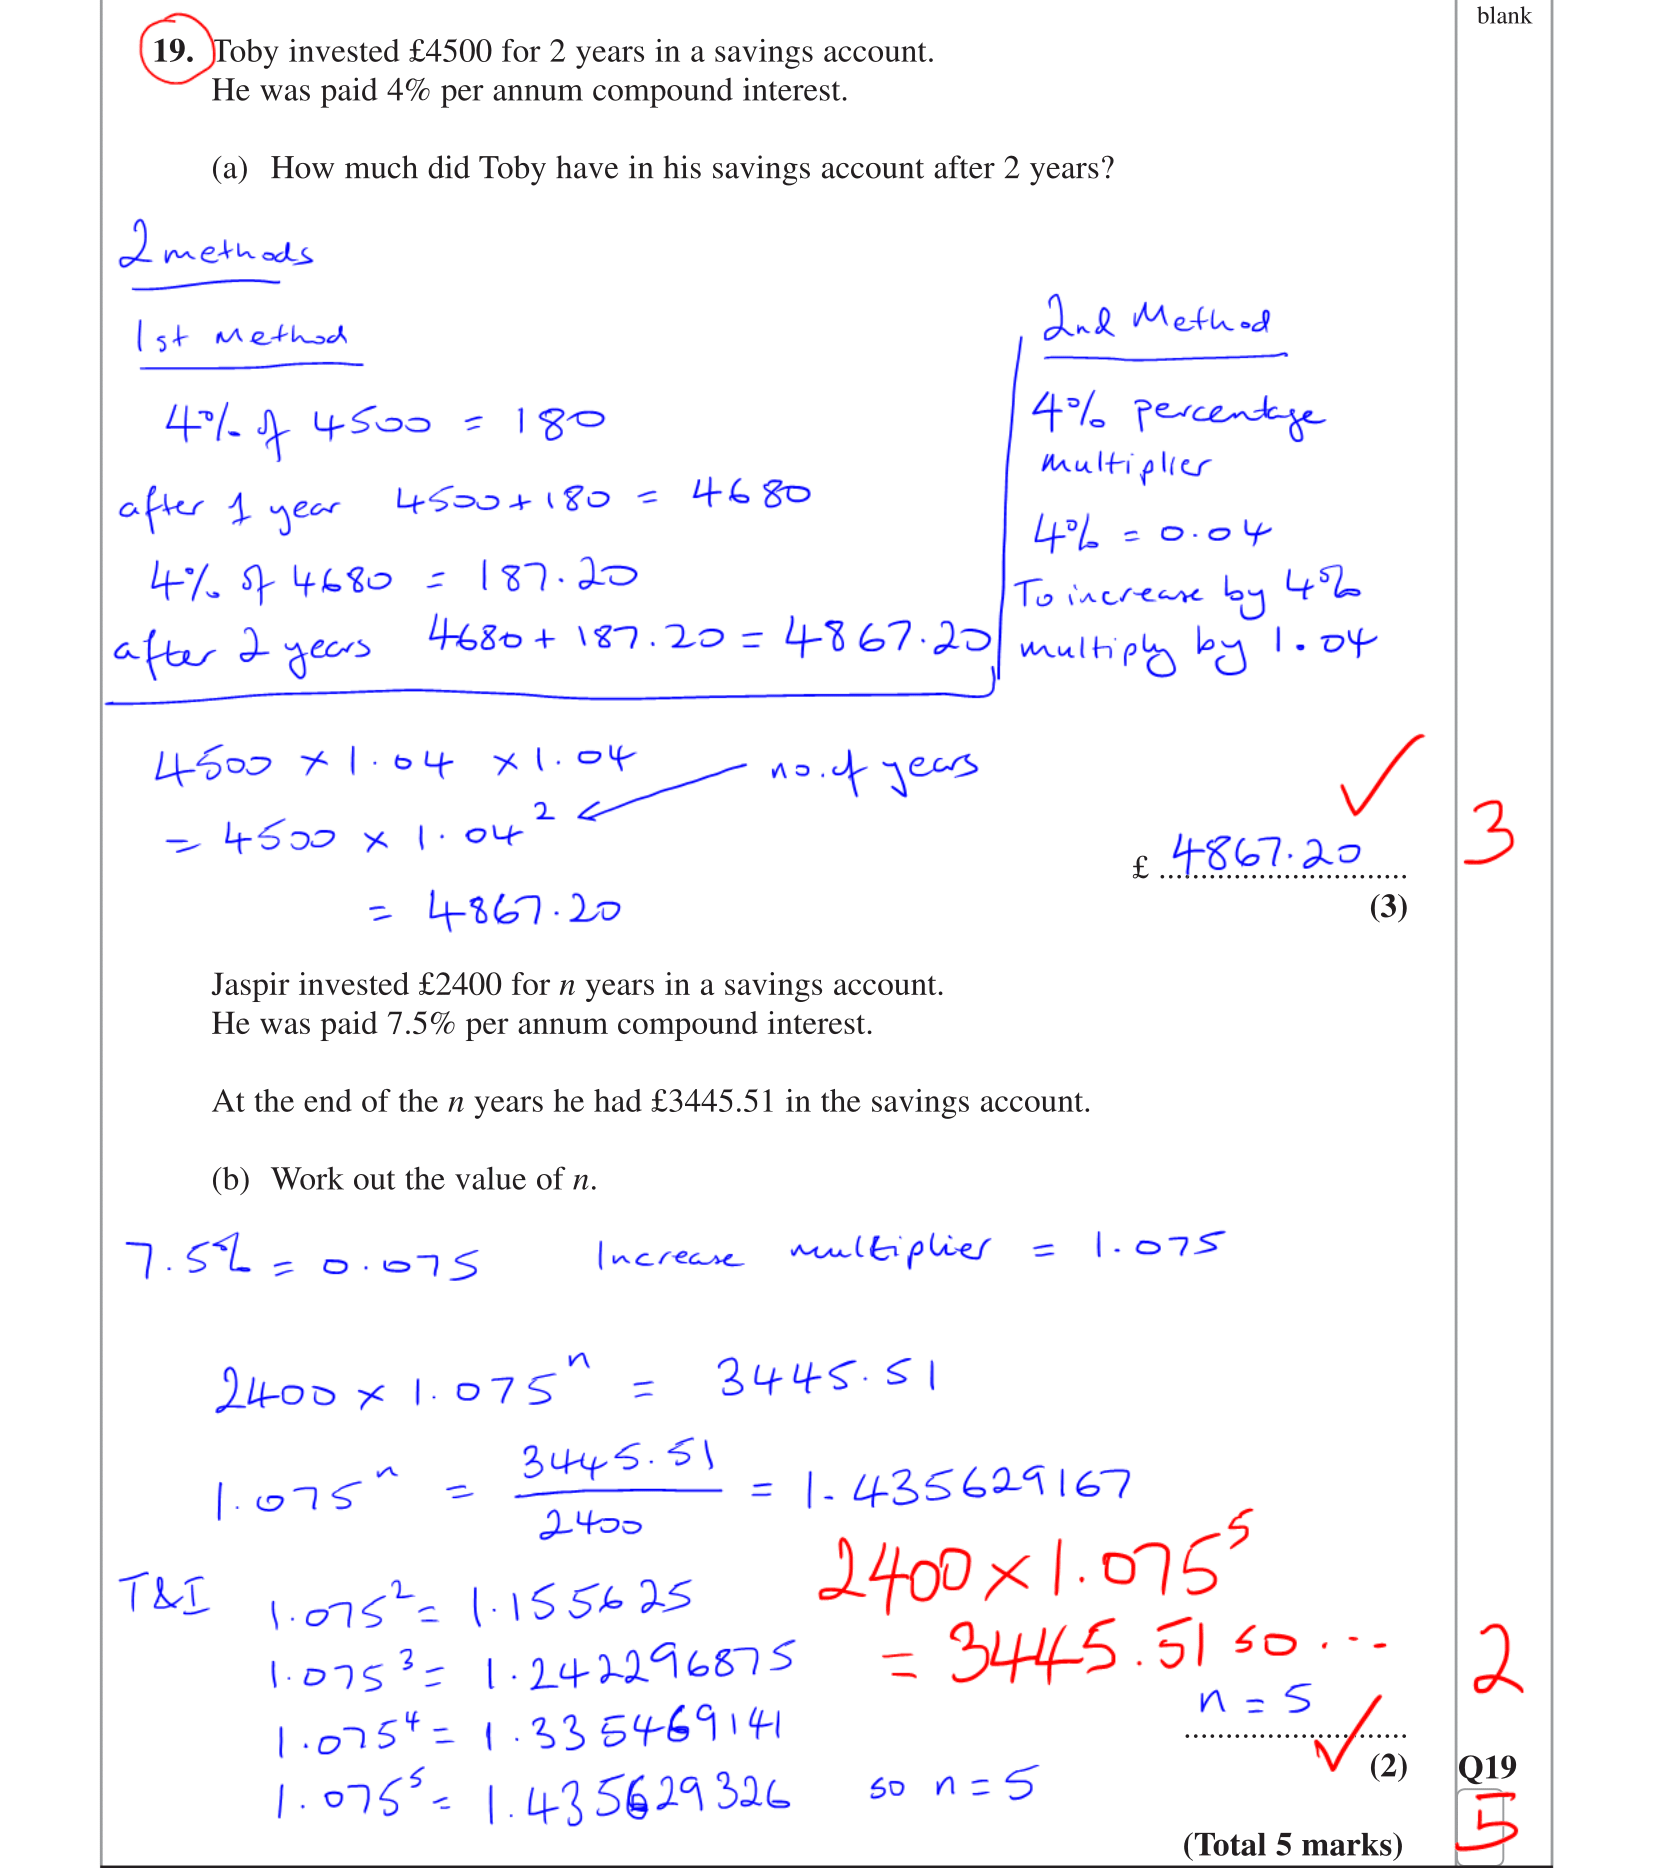 blank
19. Toby invested £4500 for 2 years in a savings account.
He was paid 4% per annum compound interest.
(a) How much did Toby have in his savings account after 2 years?
2 methods
1st Method
4% of 4500 = 180
after 1 year 4500 + 180 = 4680
4% of 4680 = 187.20
after 2 years 4680 + 187.20 = 4867.20
2nd Method
4% percentage
multiplier
4% = 0.04
To increase by 4%
multiply by 1.04
4500 × 1.04 × 1.04
no. of years
= 4500 × 1.04²
= 4867.20
£ 4867.20
3
(3)
Jaspir invested £2400 for n years in a savings account.
He was paid 7.5% per annum compound interest.
At the end of the n years he had £3445.51 in the savings account.
(b) Work out the value of n.
7.5% = 0.075 Increase multiplier = 1.075
2400 × 1.075ⁿ = 3445.51
1.075ⁿ = 3445.51/2400 = 1.435629167
T&I
1.075² = 1.155625
1.075³ = 1.242296875
1.075⁴ = 1.335469141
1.075⁵ = 1.435629326 so n = 5
2400 × 1.075⁵
= 3445.51 so...
n = 5
2
(2)
Q19
5
(Total 5 marks)